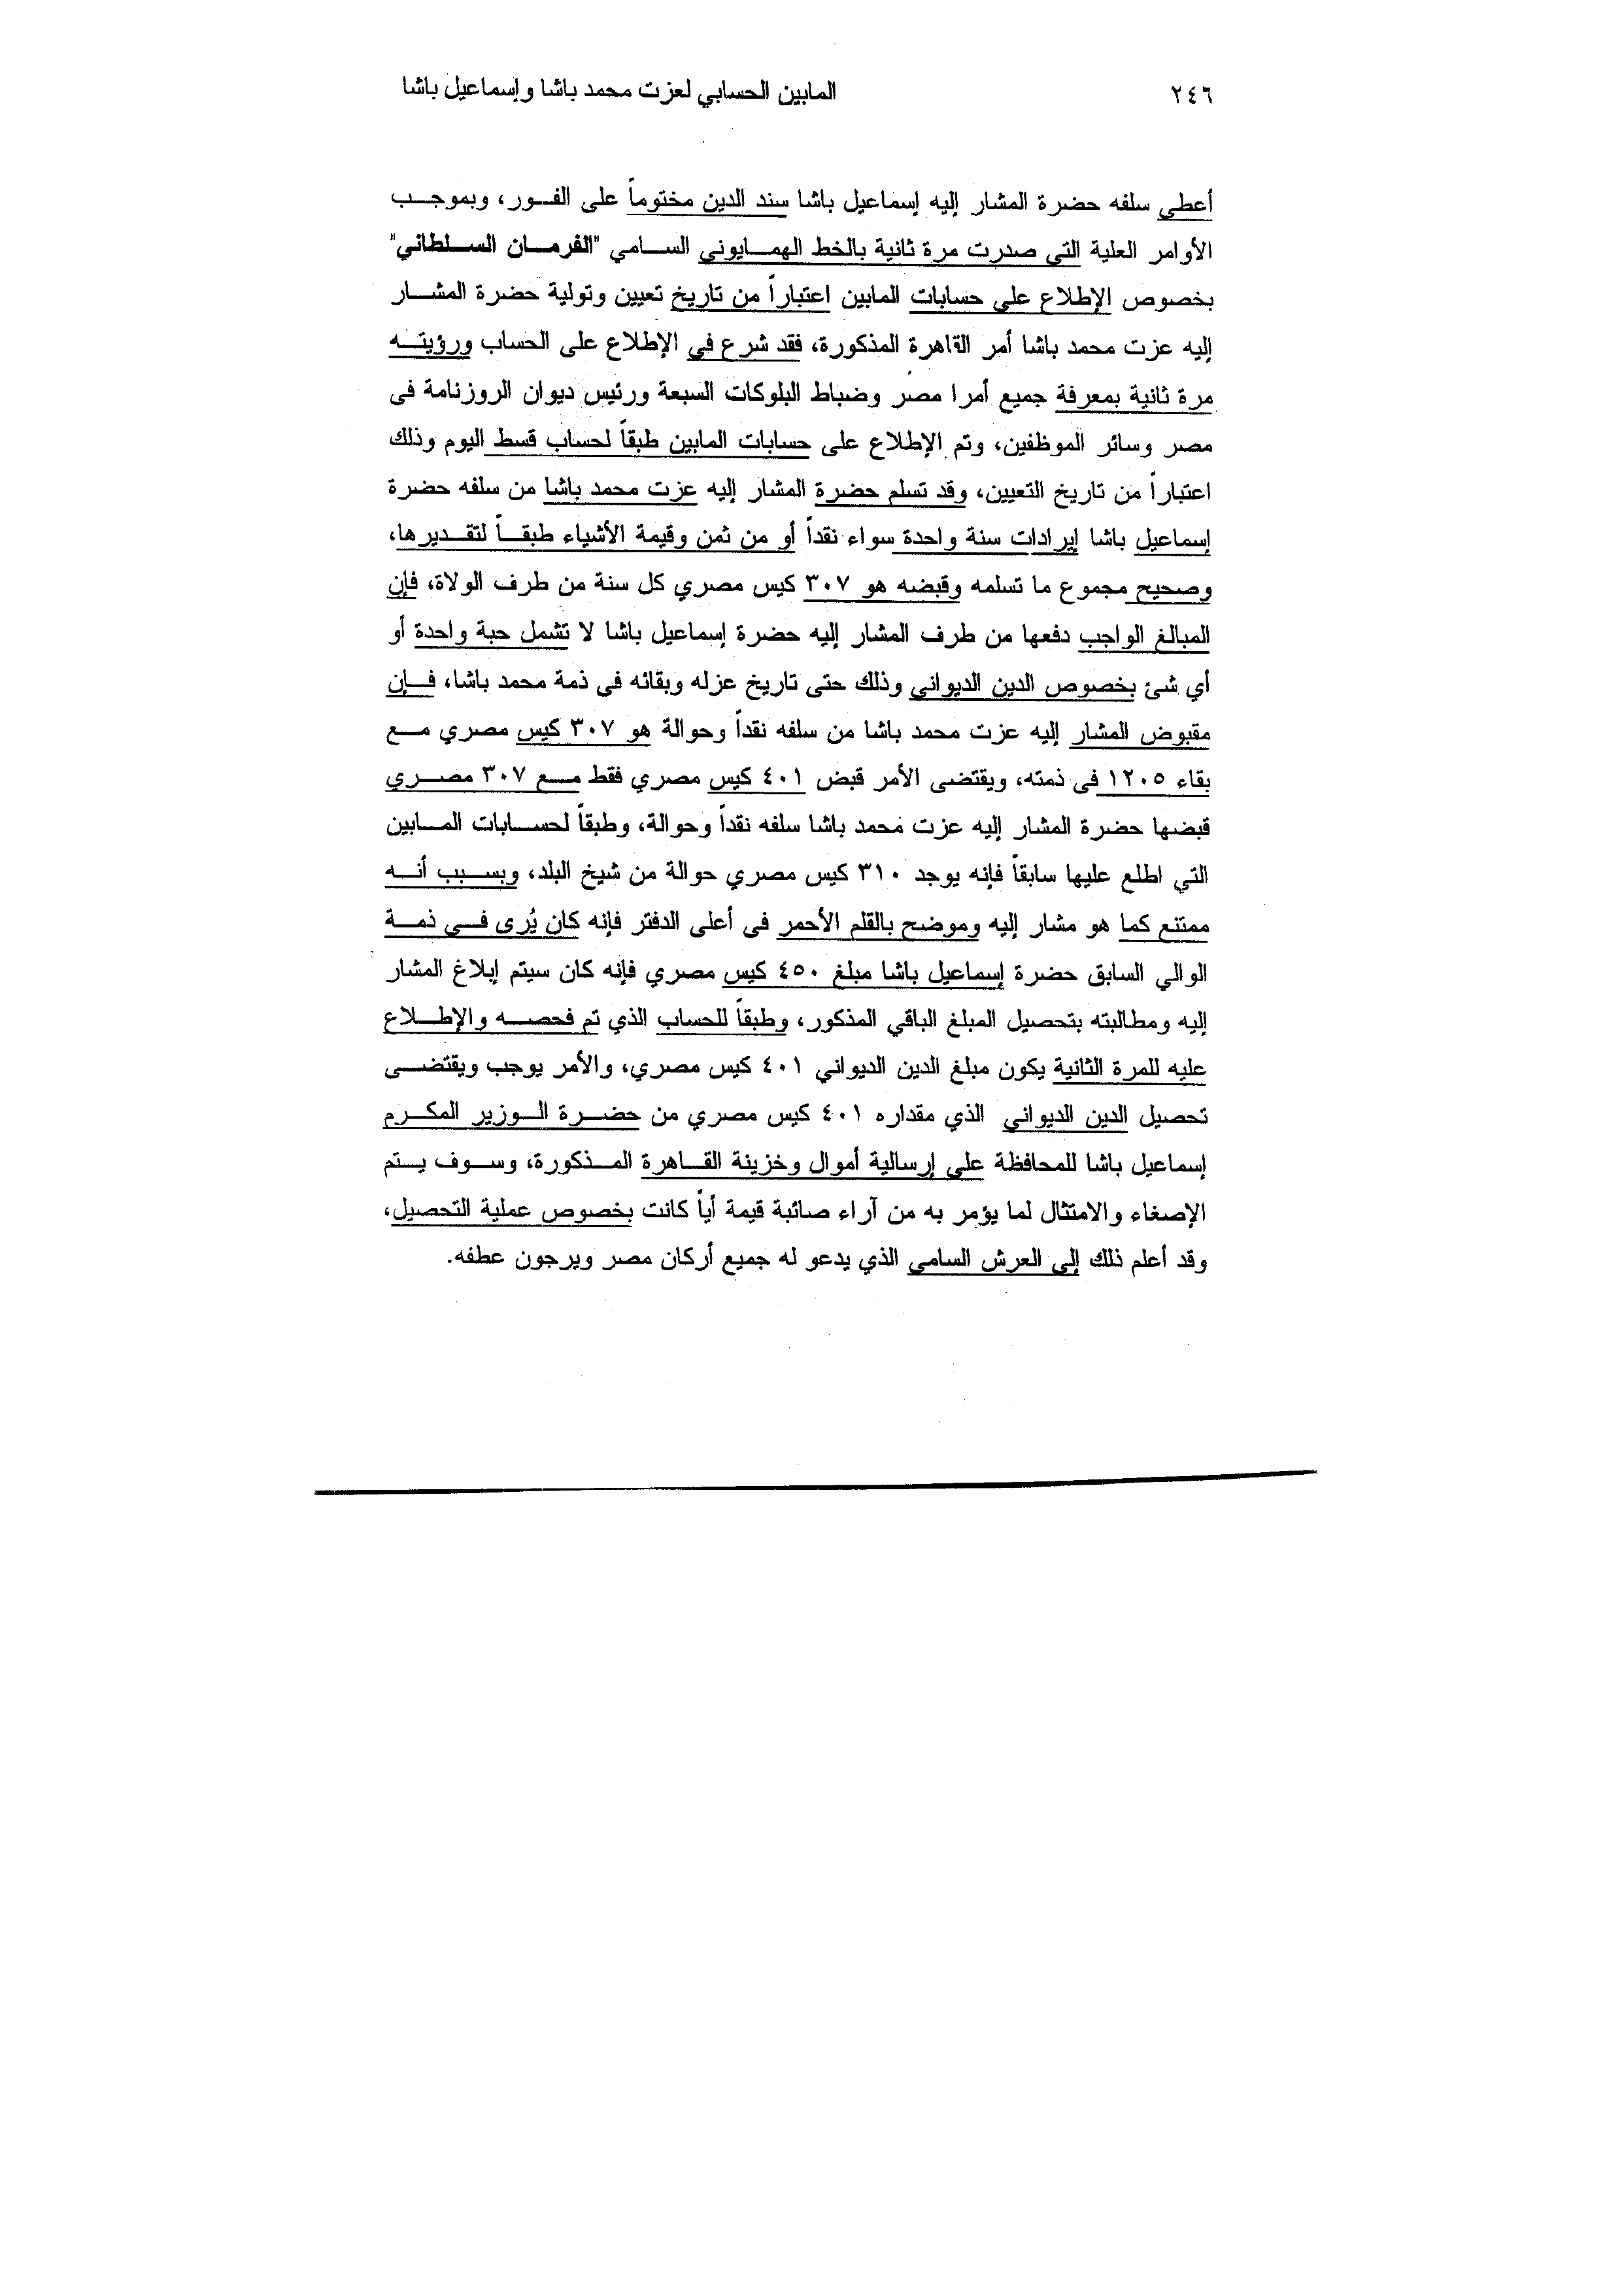 ٢٤٦ المابين الحسابي لعزت محمد باشا وإسماعيل باشا
أعطى سلفه حضرة المشار إليه إسماعيل باشا سند الدين مختوماً على الفـور، وبموجـب
الأوامر العلية التي صدرت مرة ثانية بالخط الهمـايوني السـامي "الفرمـان السـلطاني"
بخصوص الإطلاع على حسابات المابين اعتباراً من تاريخ تعيين وتولية حضرة المشـار
إليه عزت محمد باشا أمر القاهرة المذكورة، فقد شرع في الإطلاع على الحساب ورؤيتـه
مرة ثانية بمعرفة جميع أمرا مصر وضباط البلوكات السبعة ورئيس ديوان الروزنامة فى
مصر وسائر الموظفين، وتم الإطلاع على حسابات المابين طبقاً لحساب قسط اليوم وذلك
اعتباراً من تاريخ التعيين، وقد تسلم حضرة المشار إليه عزت محمد باشا من سلفه حضرة
إسماعيل باشا إيرادات سنة واحدة سواء نقداً أو من ثمن وقيمة الأشياء طبقـاً لتقـديرها،
وصحيح مجموع ما تسلمه وقبضه هو ٣٠٧ كيس مصري كل سنة من طرف الولاة، فإن
المبالغ الواجب دفعها من طرف المشار إليه حضرة إسماعيل باشا لا تشمل حبة واحدة أو
أي شئ بخصوص الدين الديواني وذلك حتى تاريخ عزله وبقائه فى ذمة محمد باشا، فـإن
مقبوض المشار إليه عزت محمد باشا من سلفه نقداً وحوالة هو ٣٠٧ كيس مصري مـع
بقاء ١٢٠٥ فى ذمته، ويقتضى الأمر قبض ٤٠١ كيس مصري فقط مـع ٣٠٧ مصـري
قبضها حضرة المشار إليه عزت محمد باشا سلفه نقداً وحوالة، وطبقاً لحسـابات المـابين
التي اطلع عليها سابقاً فإنه يوجد ٣١٠ كيس مصري حوالة من شيخ البلد، وبسـبب أنـه
ممتنع كما هو مشار إليه وموضح بالقلم الأحمر فى أعلى الدفتر فإنه كان يُرى فـي ذمـة
الوالي السابق حضرة إسماعيل باشا مبلغ ٤٥٠ كيس مصري فإنه كان سيتم إبلاغ المشار
إليه ومطالبته بتحصيل المبلغ الباقي المذكور، وطبقاً للحساب الذي تم فحصـه والإطـلاع
عليه للمرة الثانية يكون مبلغ الدين الديواني ٤٠١ كيس مصري، والأمر يوجب ويقتضـى
تحصيل الدين الديواني الذي مقداره ٤٠١ كيس مصري من حضـرة الـوزير المكـرم
إسماعيل باشا للمحافظة على إرسالية أموال وخزينة القـاهرة المـذكورة، وسـوف يـتم
الإصغاء والامتثال لما يؤمر به من آراء صائبة قيمة أياً كانت بخصوص عملية التحصيل،
وقد أعلم ذلك إلى العرش السامي الذي يدعو له جميع أركان مصر ويرجون عطفه.